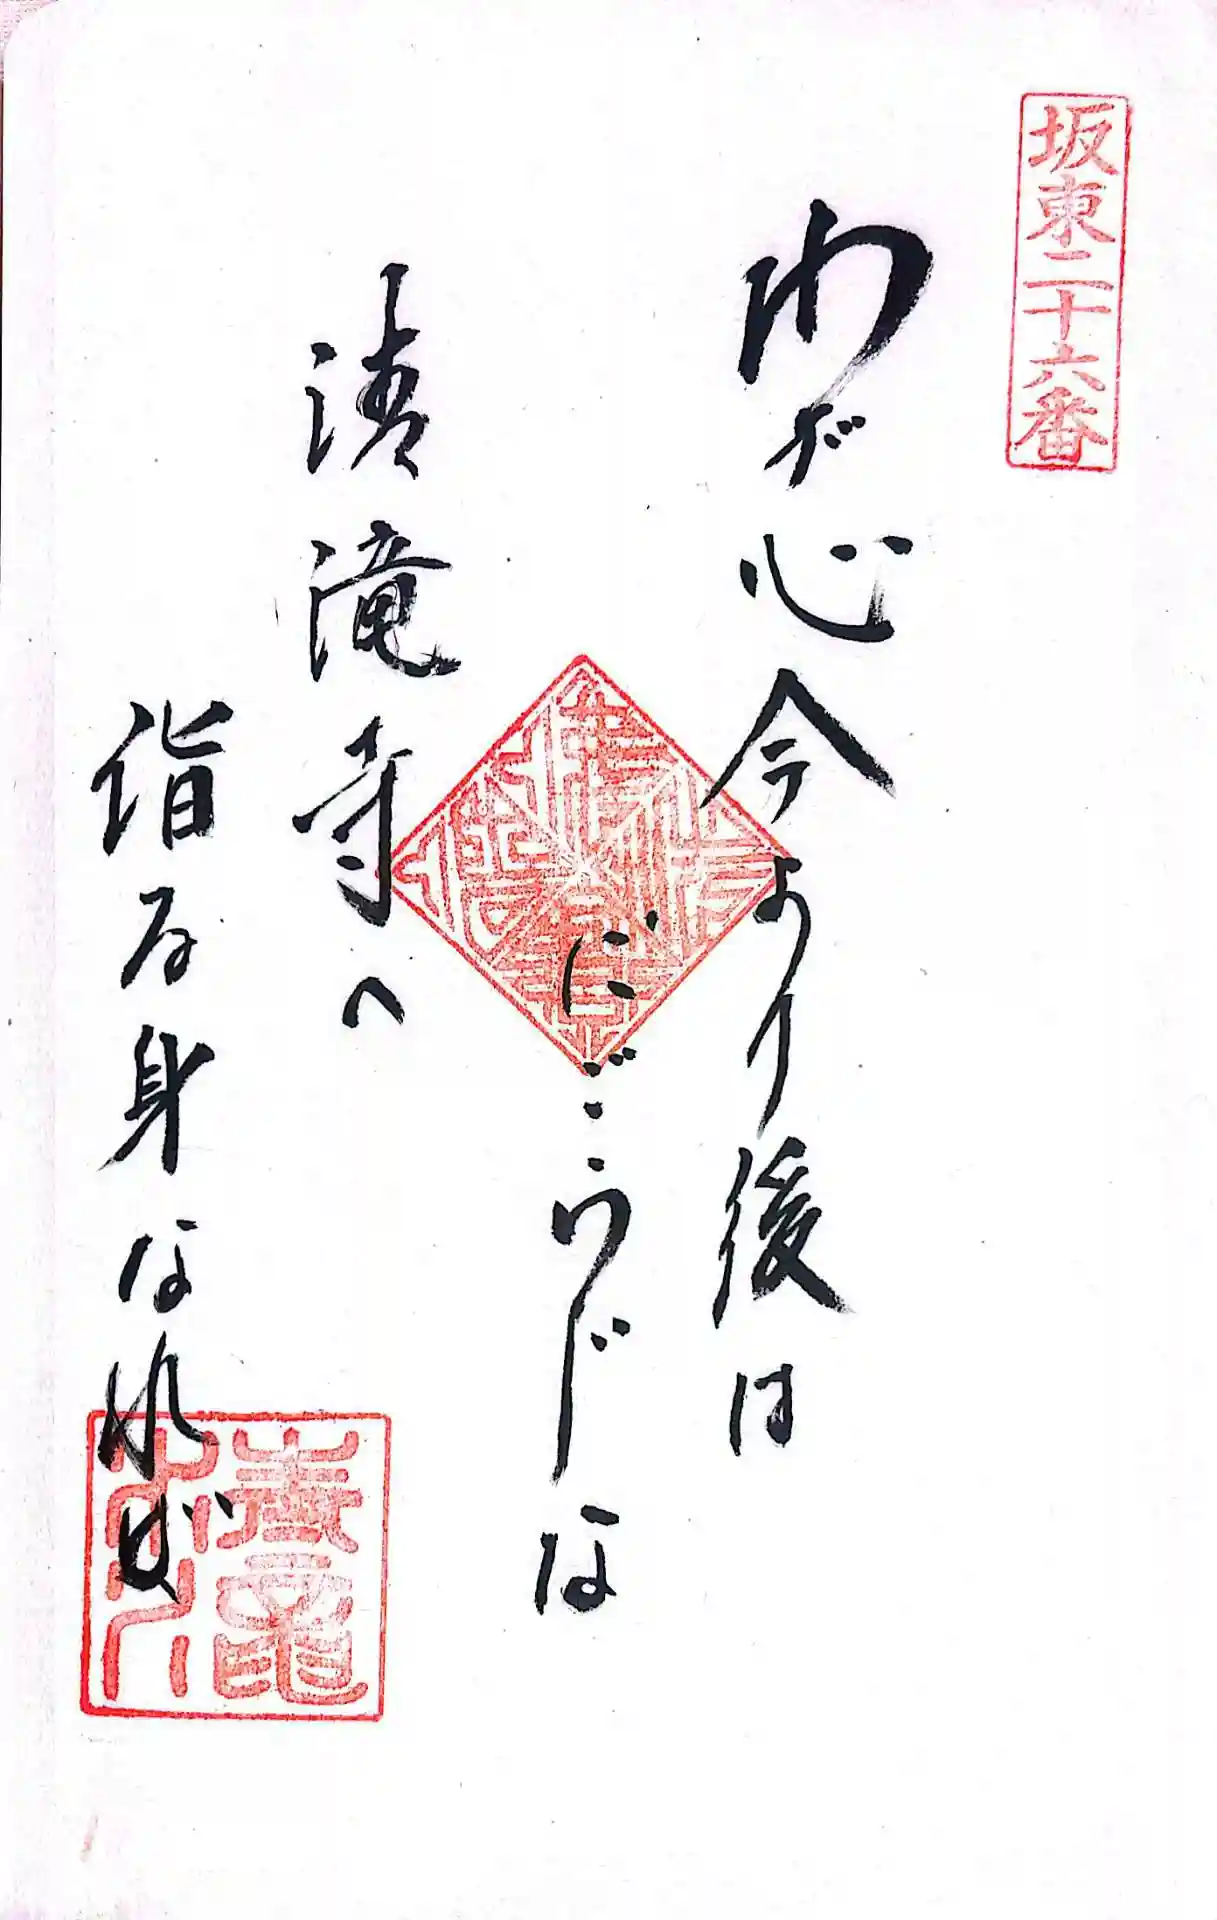 坂東二十六番
わが心今より後は
にごらじな
清滝寺へ
詣る身なれば